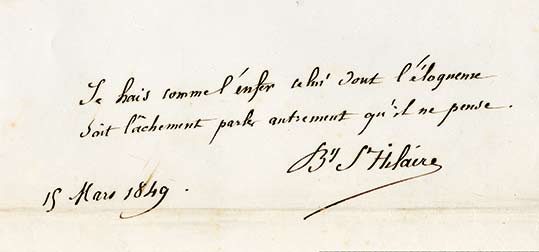 Je hais comme l'enfer celui dont l'éloquence
Sait lâchement parler autrement qu'il ne pense.
By St Hilaire
15 Mars 1849.